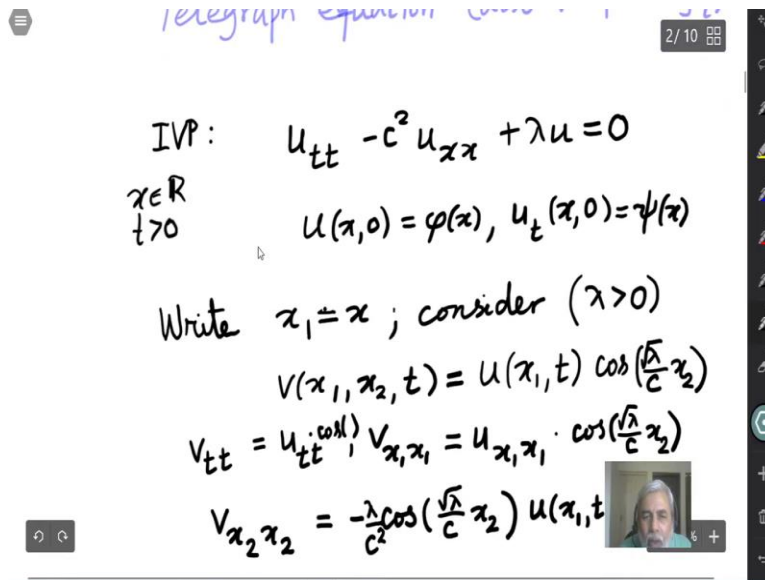 Telegraph equation
2/10
IVP: u_tt - c² u_xx + λu = 0
x ∈ ℝ
t > 0
u(x,0) = φ(x), u_t(x,0) = ψ(x)
Write x₁ = x ; consider (λ>0)
v(x₁, x₂, t) = u(x₁, t) cos(√λ/c x₂)
v_tt = u_tt · cos( ), v_x₁x₁ = u_x₁x₁ · cos(√λ/c x₂)
v_x₂x₂ = -λ/c² cos(√λ/c x₂) u(x₁, t
% +